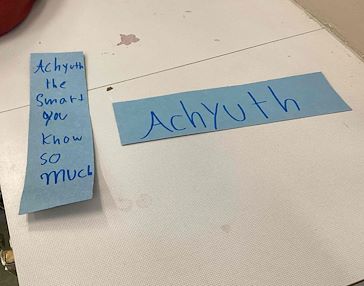 Achyuth
the
Smart
you
know
so
much
Achyuth